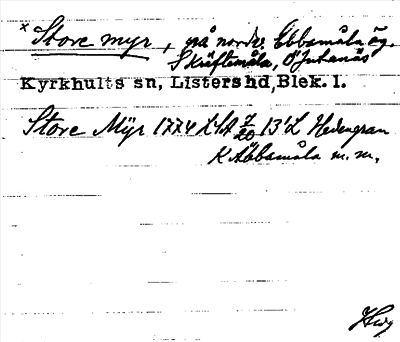 x Store myr, på nordv. Ebbamåla äg.
S Kräftemåla, Ö Juhanäs
Kyrkhults sn, Listers hd, Blek. l.
Store Myr 1774 LMA 7/20 13'L Hedengran
K Äbbamåla m. m.